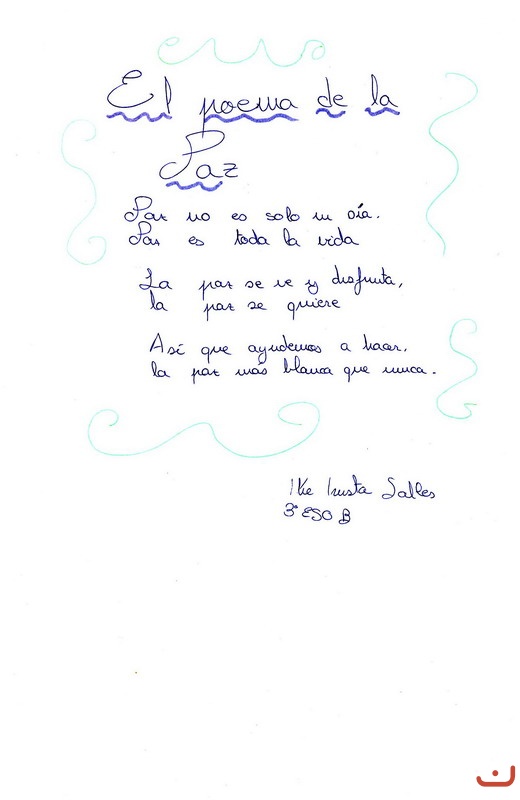 El poema de la
Paz
Paz no es solo un día.
Paz es toda la vida
La paz se ve y disfruta,
la paz se quiere
Así que ayudemos a hacer,
la paz más blanca que nunca.
Irusta Salles
3º ESO B